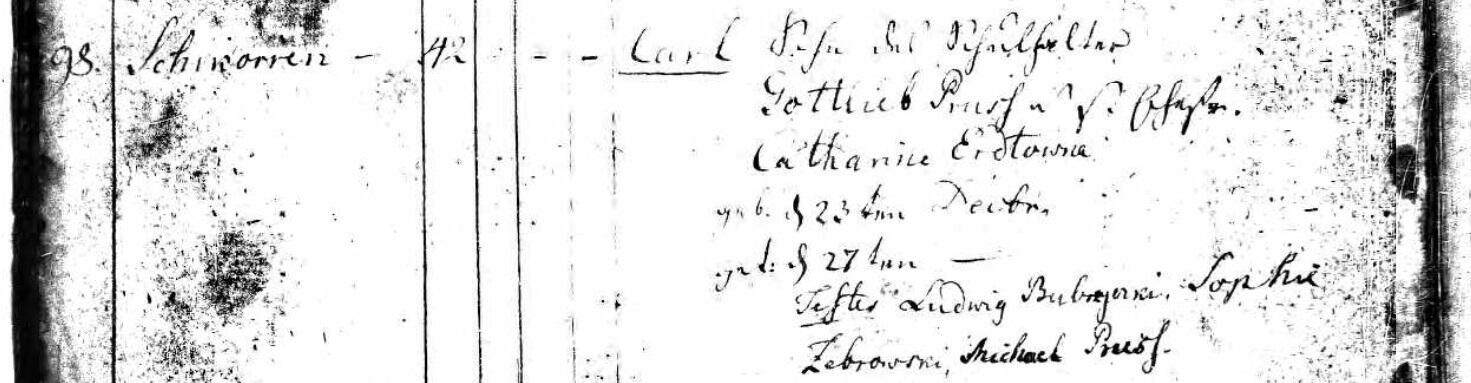 98. Schworren - 42 - - Carl Sohn des Schulhalter
Gottlieb Preuss u s. Ehefr.
Catharine Erdtowna
geb. d 23 ten Decbr.
get: d 27 ten —
Testes Ludwig Sophie
Zebrowski, Michael Preuss.